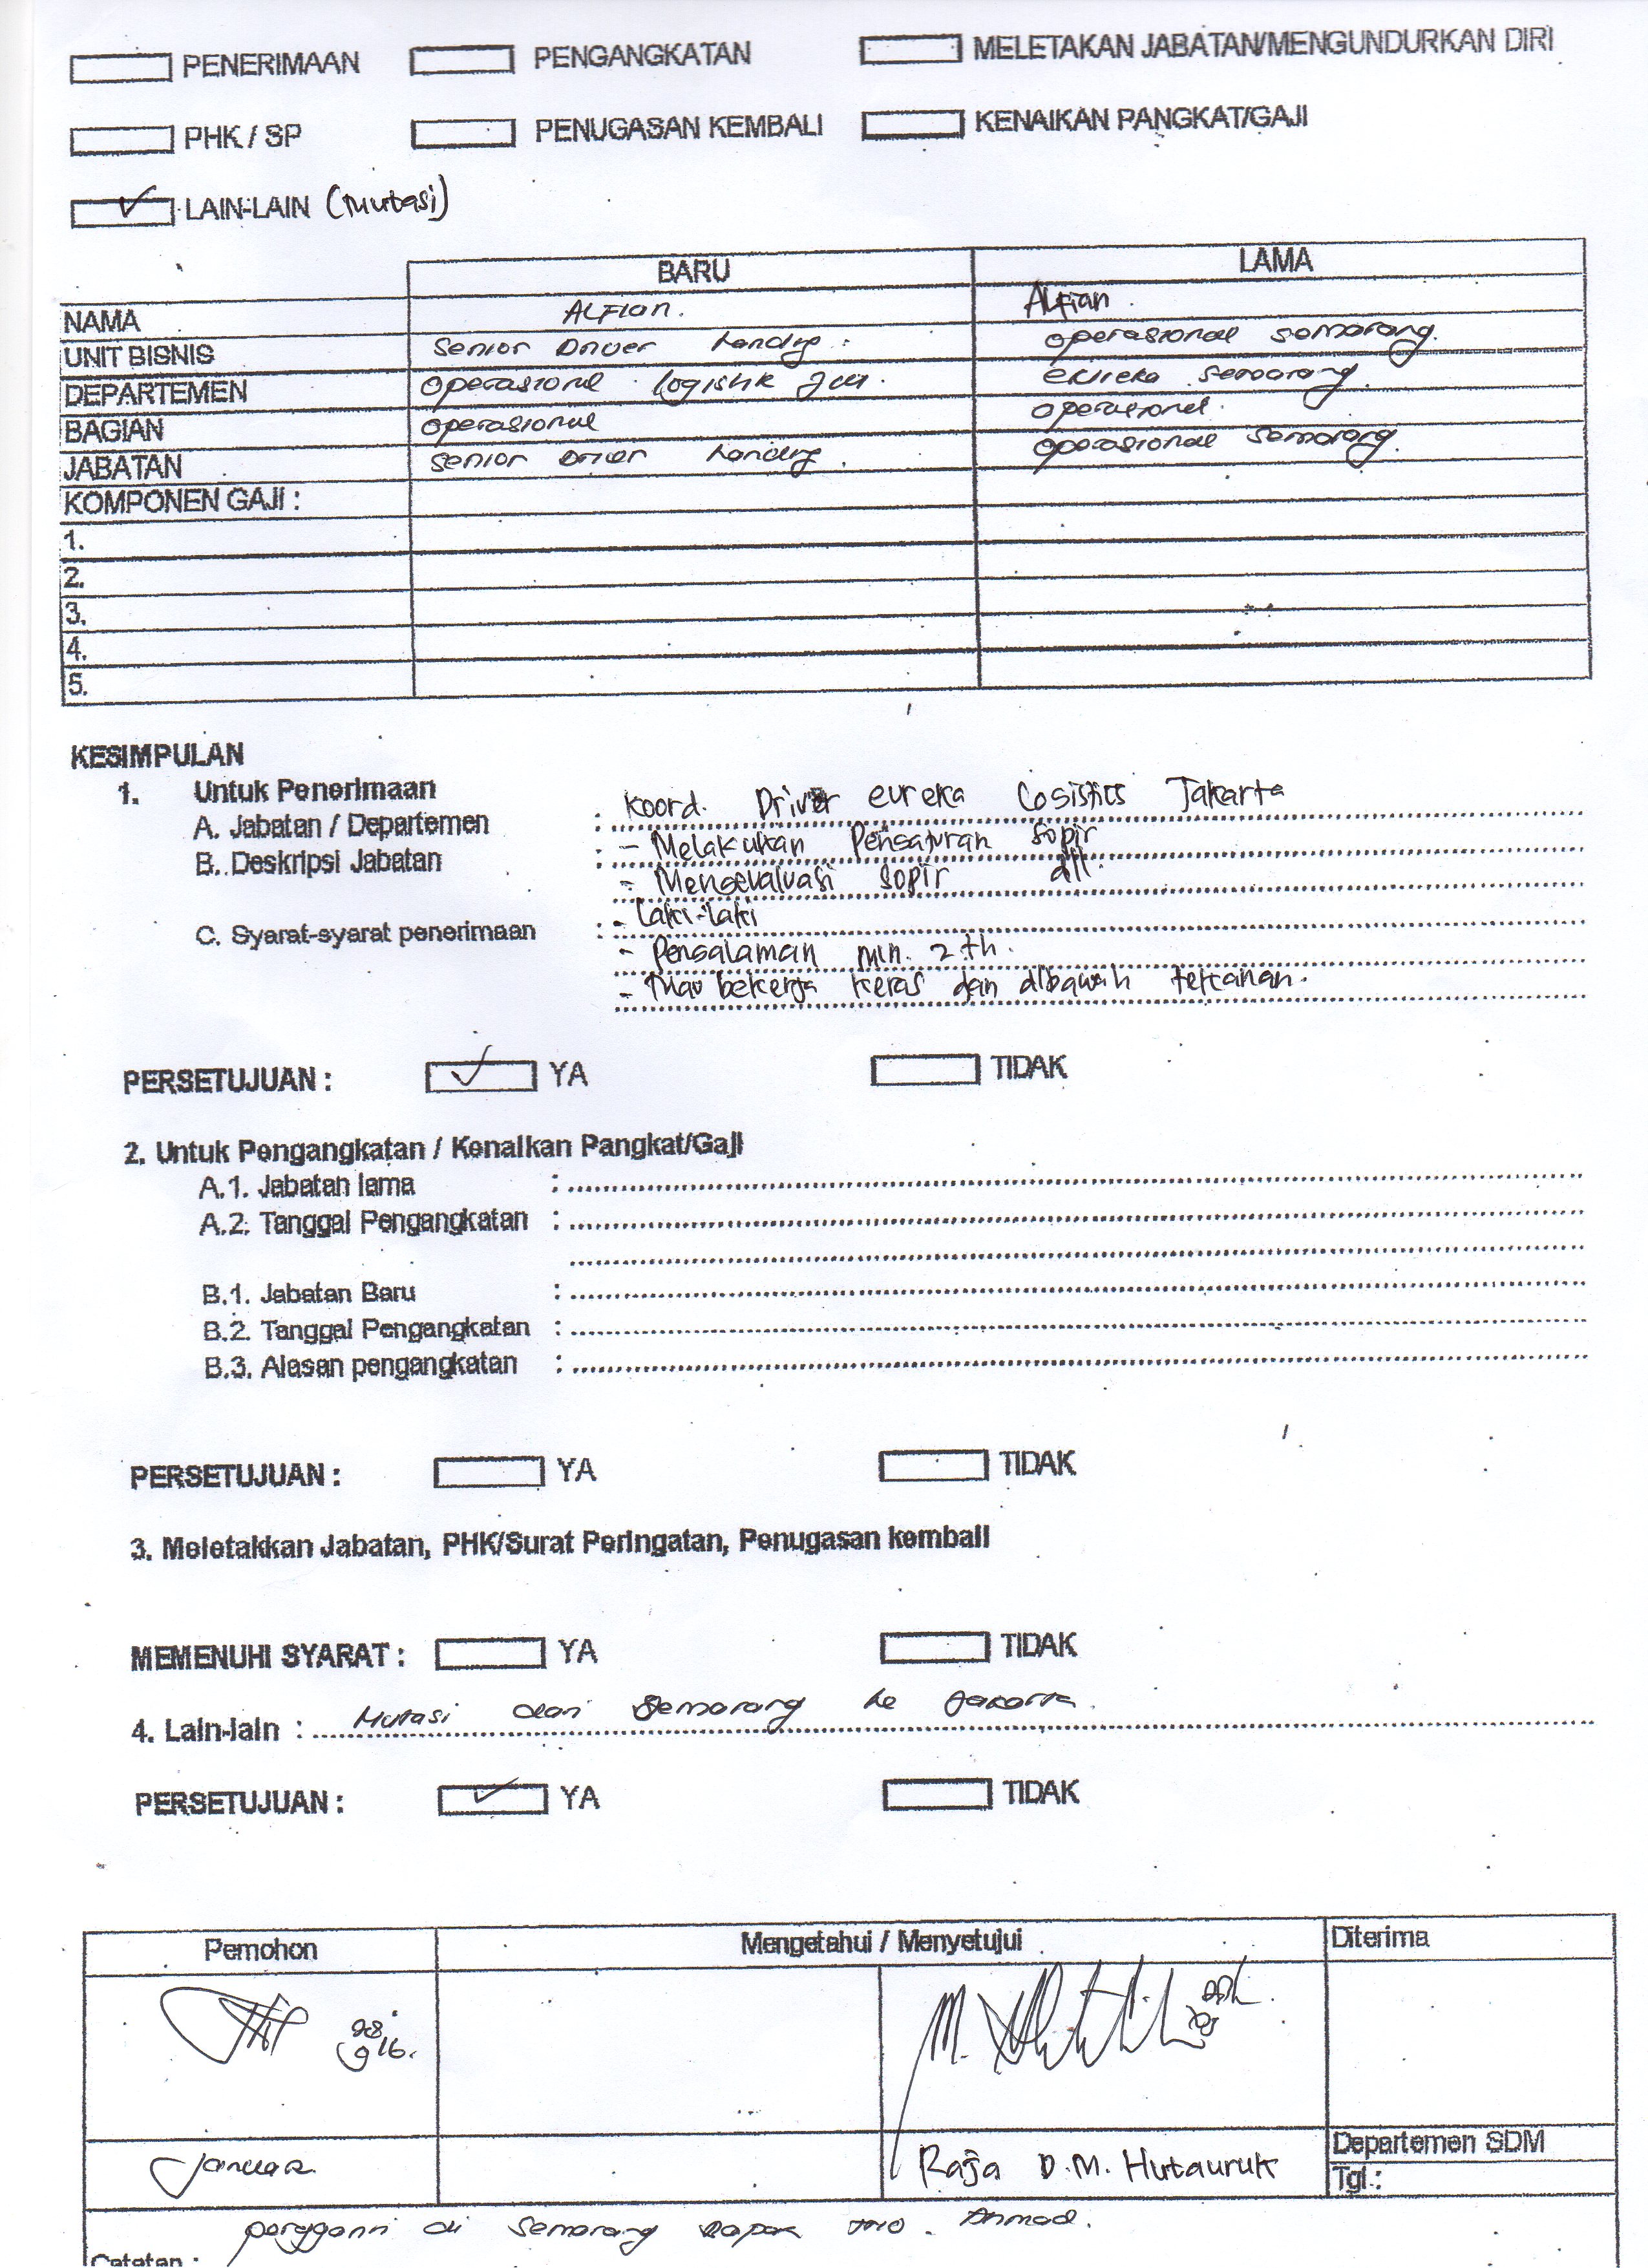 PENERIMAAN PENGANGKATAN MELETAKAN JABATAN/MENGUNDURKAN DIRI
PHK / SP PENUGASAN KEMBALI KENAIKAN PANGKAT/GAJI
LAIN-LAIN (Mutasi)
BARU LAMA
NAMA ALFian. ALFian.
UNIT BISNIS Senior Driver operasional semarang.
DEPARTEMEN operasional logistik eureka semarang.
BAGIAN operasional operasional.
JABATAN Senior Driver operasional semarang.
KOMPONEN GAJI :
1.
2.
3.
4.
5.
KESIMPULAN
1. Untuk Penerimaan
A. Jabatan / Departemen : Koord. Driver eureka Logistics Jakarta
B. Deskripsi Jabatan : - Melakukan Pengaturan Sopir
- Mengevaluasi Sopir dll.
C. Syarat-syarat penerimaan : - Laki-laki
- Pengalaman min. 2 th.
- Mau bekerja keras dan dibawah tekanan.
PERSETUJUAN : YA TIDAK
2. Untuk Pengangkatan / Kenaikan Pangkat/Gaji
A.1. Jabatan lama :
A.2. Tanggal Pengangkatan :
B.1. Jabatan Baru :
B.2. Tanggal Pengangkatan :
B.3. Alasan pengangkatan :
PERSETUJUAN : YA TIDAK
3. Meletakkan Jabatan, PHK/Surat Peringatan, Penugasan kembali
MEMENUHI SYARAT : YA TIDAK
4. Lain-lain : Mutasi dari Semarang ke Jakarta.
PERSETUJUAN : YA TIDAK
Pemohon Mengetahui / Menyetujui Diterima
Januar. Raja D.M. Hutauruk Departemen SDM
Tgl.:
pengganti di Semarang Bapak Ahmad.
Catatan :